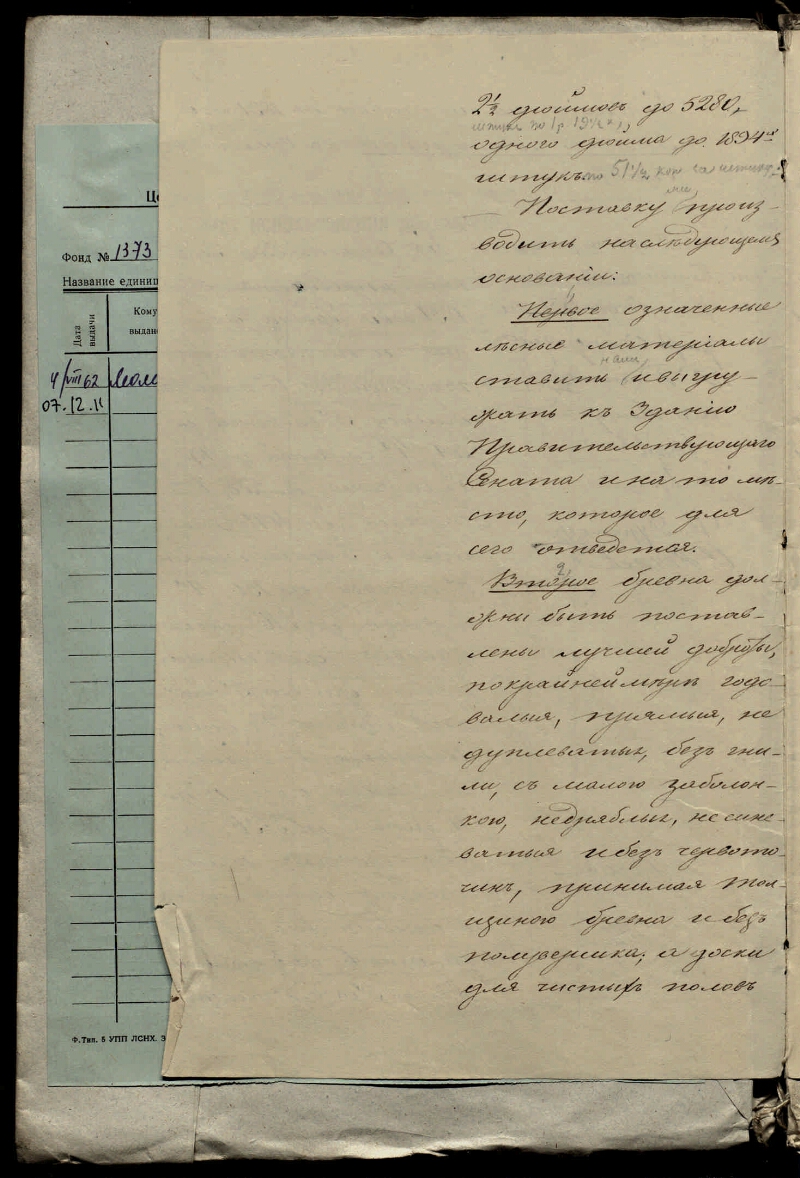 Ц
Фонд № 1373
Название единиц
Дата выдачи
Кому
выдан
4/VIII 62
07.12.11
Ф. Тип. 5 УПП ЛСНХ. З
2½ дюймовъ до 5280,
штукъ по 1 р. 19½ к.,
одного дюйма до 1894хъ
штукъ по 51½ коп. за штуку
Поставку мне произ-
водить на слѣдующемъ
основаніи:
Первое означенные
лѣсные матеріалы
ставить и выгру-
жать къ Зданію
Правительствующаго
Сената и на то мѣ-
сто, которое для
сего отведется.
2.
Второе бревна дол-
жны быть постав-
лены лучшей доброты,
покрайней мѣрѣ годо-
валыя, прямыя, не
дуплеватыя, безъ гни-
ли, съ малою заболон-
кою, недряблыя, не сине-
ватыя и безъ червото-
чинъ, принимая тол-
щиною бревна и безъ
полувершка; а доски
для чистыхъ половъ